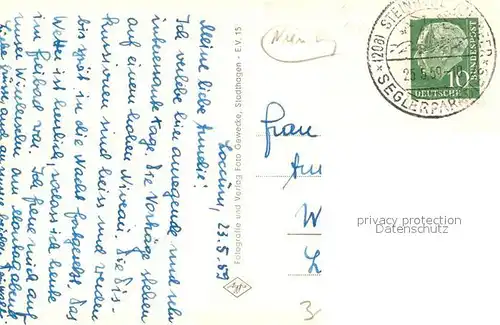 Loccum, 23.5.59
Meine liebe Amelie!
Ich verlebe hier anregende und sehr
interessante Tage. Die Vorträge stehen
auf einem hohen Niveau. Die Dis-
kussionen sind heiss und werden
bis spät in die Nacht fortgesetzt. Das
Wetter ist herrlich, sodass ich heute
im Freibad war. Ich freue mich auf
unser Wiedersehen am Montagabend
Fotografie und Verlag Foto Gewecke, Stadthagen - E.V. 15
Agfa
(20a) STEINHUDE
SEGLERPARADIES
DEUTSCHE
BUNDESPOST
10
Frau
Am
W
L
3
privacy protection
Datenschutz